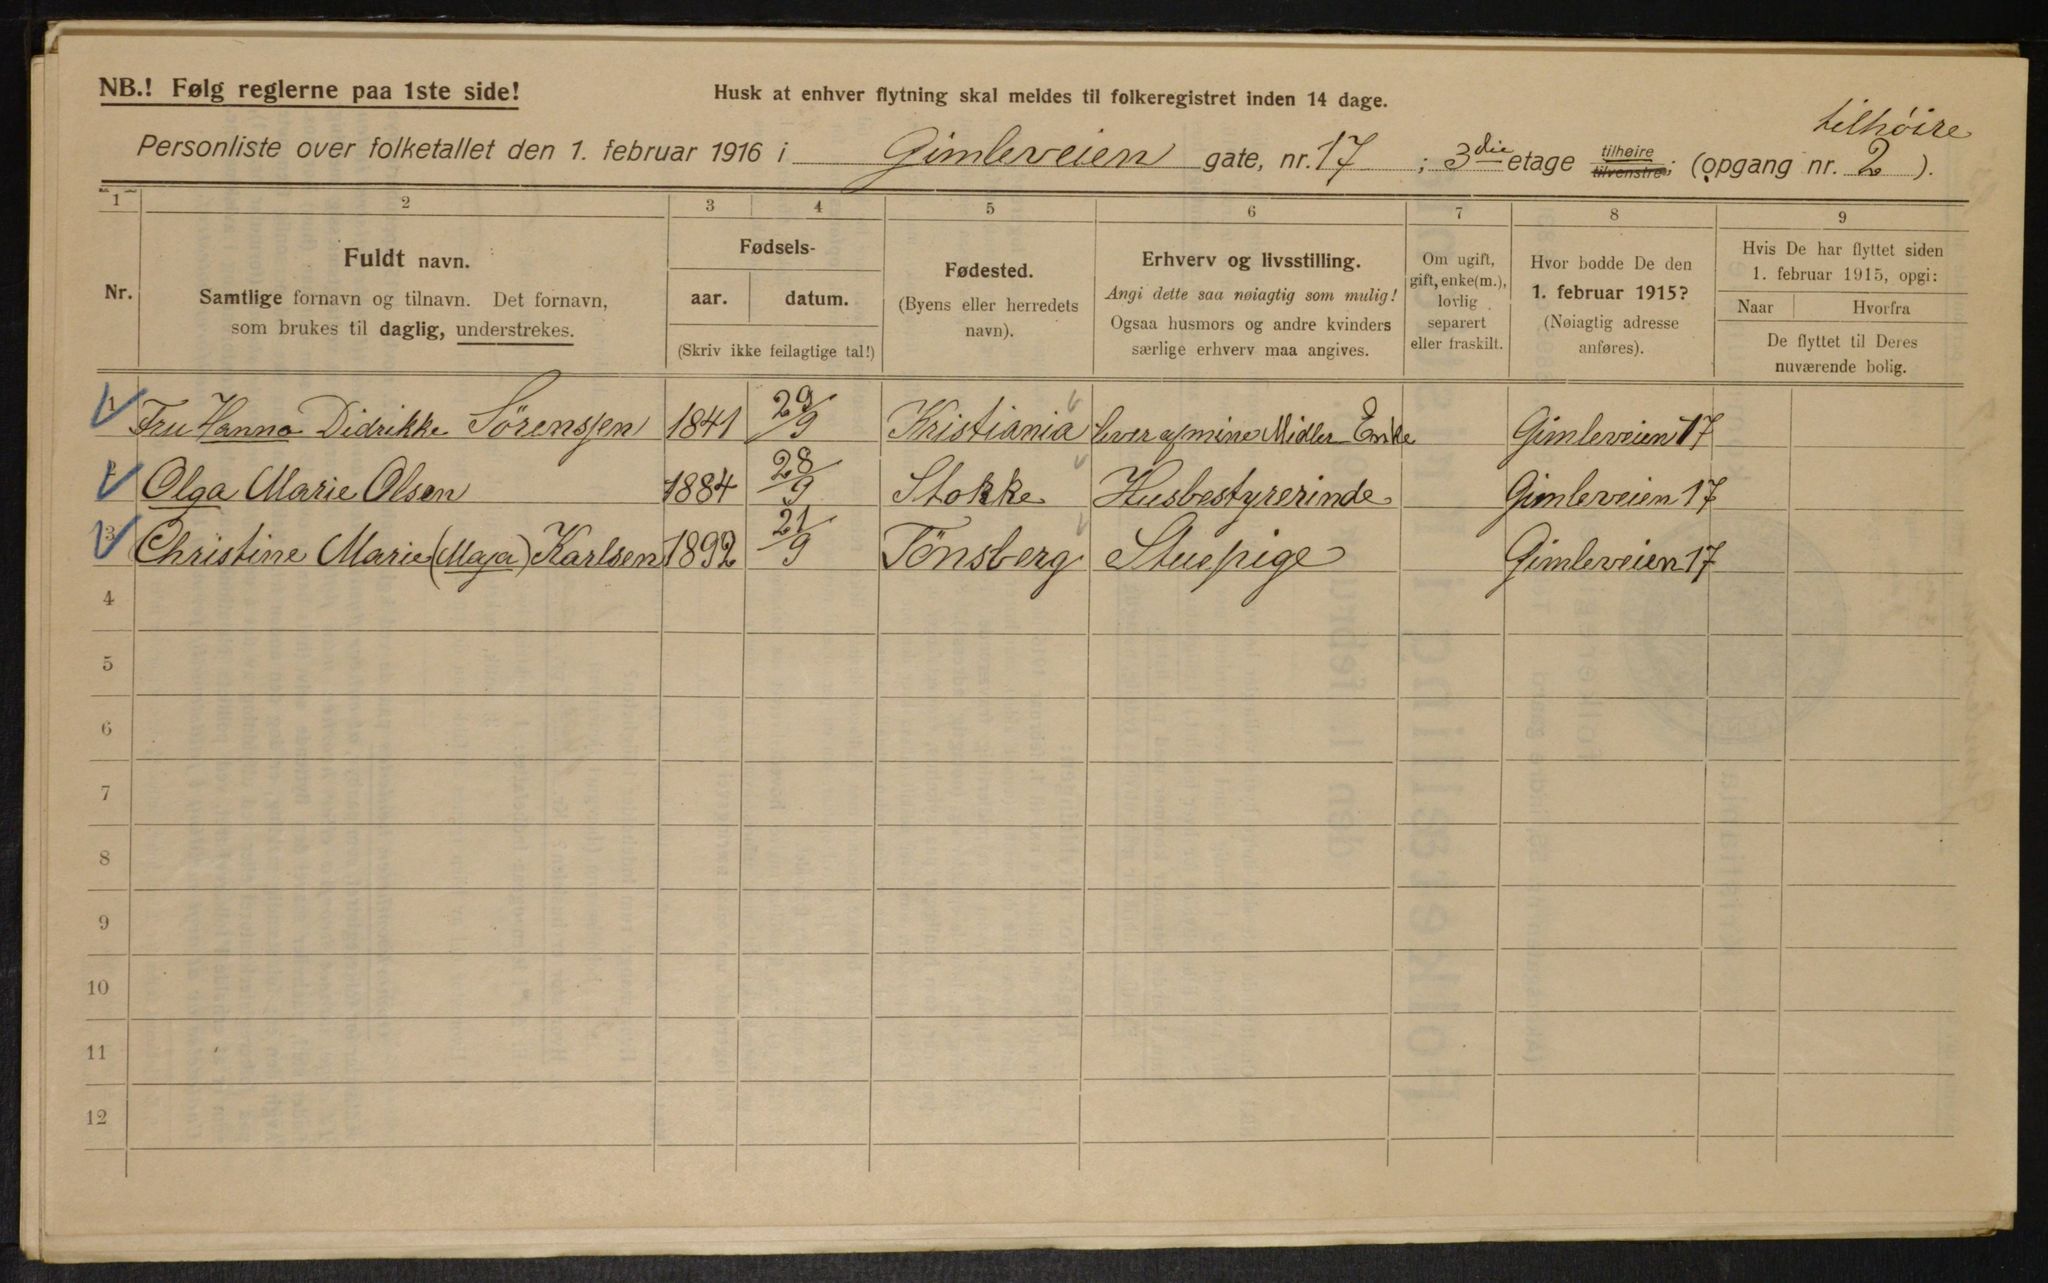 NB.! Følg reglerne paa 1ste side!
Husk at enhver flytning skal meldes til folkeregistret inden 14 dage.
tilhøire
Personliste over folketallet den 1. februar 1916 i Gimleveien gate, nr. 17 ; 3die etage tilhøire tilvenstre; (opgang nr. 2 ).
1 2 3 4 5 6 7 8 9
Nr.
Fuldt navn.
Samtlige fornavn og tilnavn. Det fornavn,
som brukes til daglig, understrekes.
Fødsels-
aar. datum.
(Skriv ikke feilagtige tal!)
Fødested.
(Byens eller herredets
navn).
Erhverv og livsstilling.
Angi dette saa nøiagtig som mulig!
Ogsaa husmors og andre kvinders
særlige erhverv maa angives.
Om ugift,
gift, enke(m.),
lovlig
separert
eller fraskilt.
Hvor bodde De den
1. februar 1915?
(Nøiagtig adresse
anføres).
Hvis De har flyttet siden
1. februar 1915, opgi:
Naar Hvorfra
De flyttet til Deres
nuværende bolig.
1 Fru Hanna Didrikke Sørenssen 1841 29/9 Kristiania lever af mine Midler Enke Gimleveien 17
2 Olga Marie Olsen 1884 28/9 Stokke Husbestyrerinde Gimleveien 17
3 Christine Marie (Maja) Karlsen 1892 21/9 Tönsberg Stuepige Gimleveien 17
4
5
6
7
8
9
10
11
12